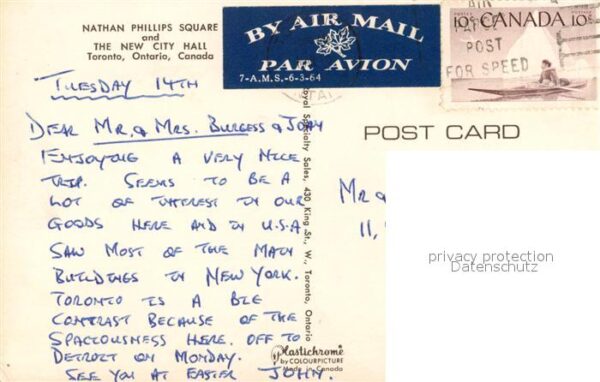 NATHAN PHILLIPS SQUARE
and
THE NEW CITY HALL
Toronto, Ontario, Canada
BY AIR MAIL
PAR AVION
7-A.M.S.-6-3-64
10¢ CANADA 10¢
AIR
POST
FOR SPEED
TUESDAY 14TH
DEAR MR. & MRS. BURGESS & JOHN
ENJOYING A VERY NICE
TRIP. SEEMS TO BE A
LOT OF INTEREST IN OUR
GOODS HERE AND IN U.S.A
SAW MOST OF THE MAIN
BUILDINGS IN NEW YORK.
TORONTO IS A BIG
CONTRAST BECAUSE OF THE
SPACIOUSNESS HERE. OFF TO
DETROIT ON MONDAY.
SEE YOU AT EASTER JOHN.
Royal Specialty Sales, 430 King St., W., Toronto, Ontario
Plastichrome
by COLOURPICTURE
Made in Canada
POST CARD
MR &
11,
privacy protection
Datenschutz